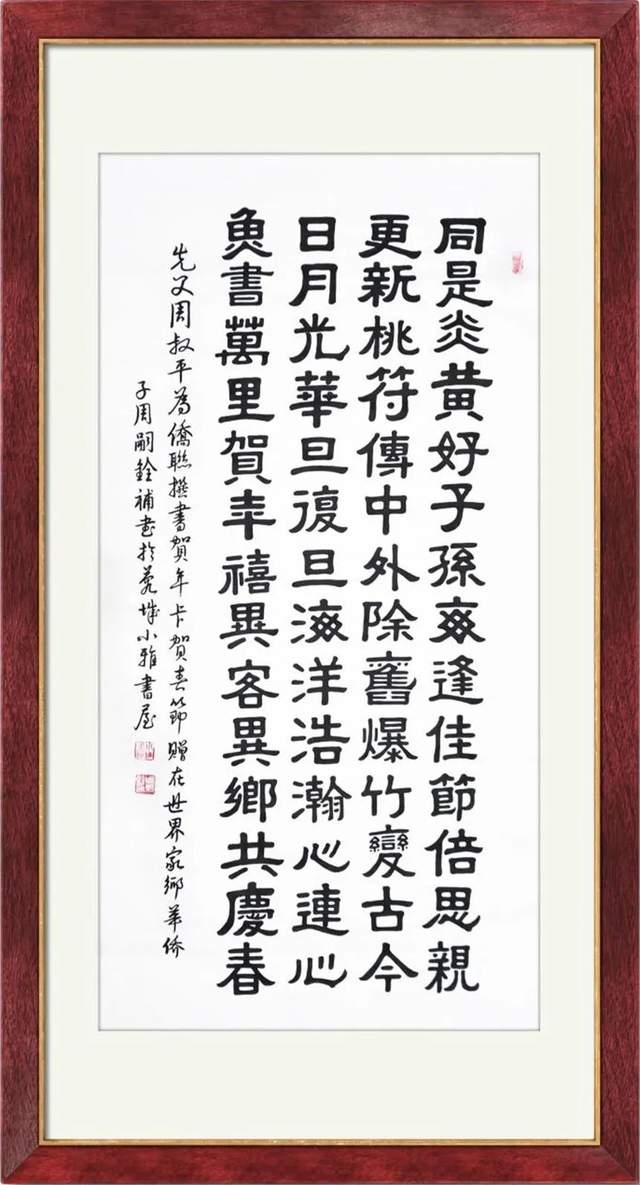 同是炎黃好子孫每逢佳節倍思親
更新桃符傳中外除舊爆竹變古今
日月光華旦復旦海洋浩瀚心連心
魚書萬里賀年禧異客異鄉共慶春
先父周叔平為僑聯撰書賀年卡賀春節贈在世界家鄉華僑
子周嗣銓補書於蓉城小雅書屋